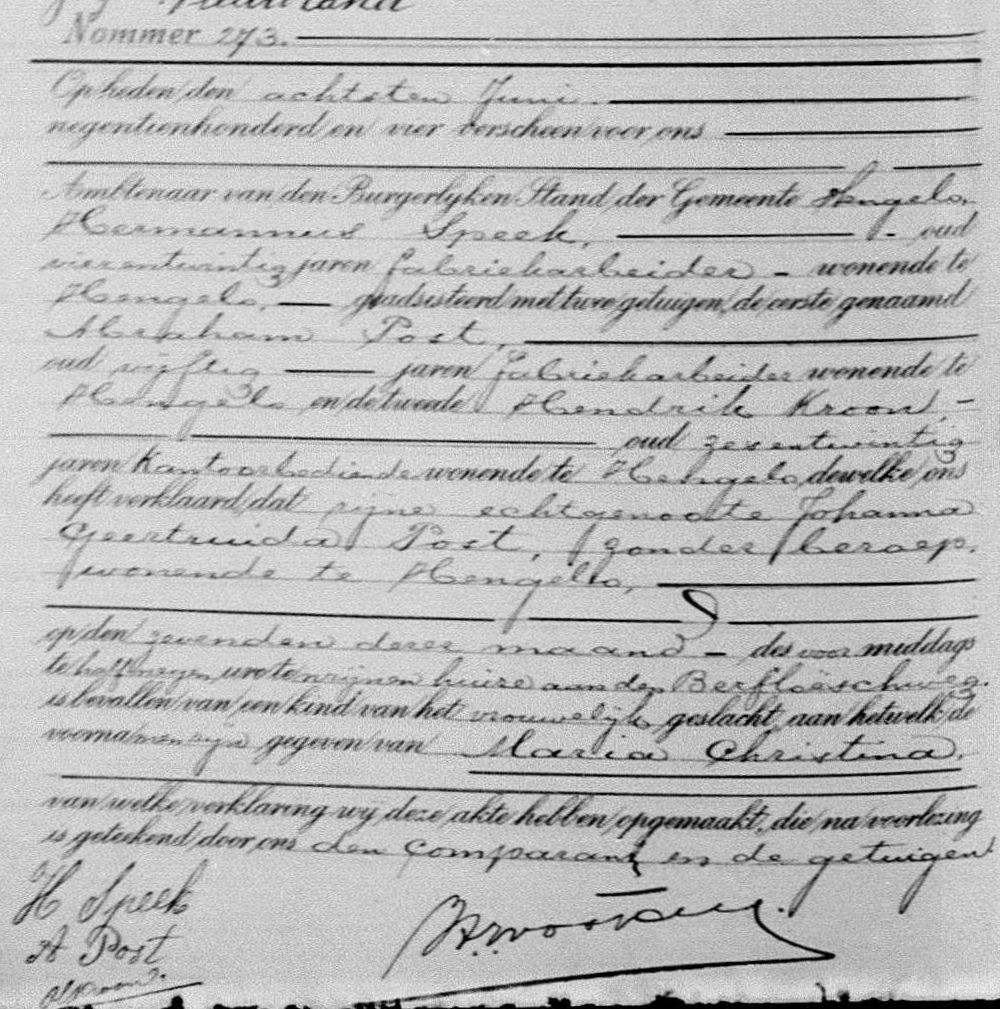 Nommer 273.
Op heden den achtsten Juni
negentienhonderd en vier verscheen voor ons
Ambtenaar van den Burgerlyken Stand der Gemeente Hengelo,
Hermannus Speek, oud
vierentwintig jaren fabriekarbeider - wonende te
Hengelo, geadsisteerd met twee getuigen, de eerste genaamd
Abraham Post,
oud vijftig jaren fabriekarbeider wonende te
Hengelo en de tweede Hendrik Kroon,
oud zesentwintig
jaren Kantoorbediende wonende te Hengelo, dewelke ons
heeft verklaard, dat zijne echtgenoote Johanna
Geertruida Post, zonder beroep,
wonende te Hengelo,
op den zevenden dezer maand - des voor middags
te half negen ure te zijnen huize aan den
is bevallen van een kind van het vrouwelijk geslacht, aan hetwelk de
voornamen zijn gegeven van Maria Christina.
van welke verklaring wy deze akte hebben opgemaakt, die na voorlezing
is geteekend door ons den comparant en de getuigen
H Speek
A Post
HKroon.